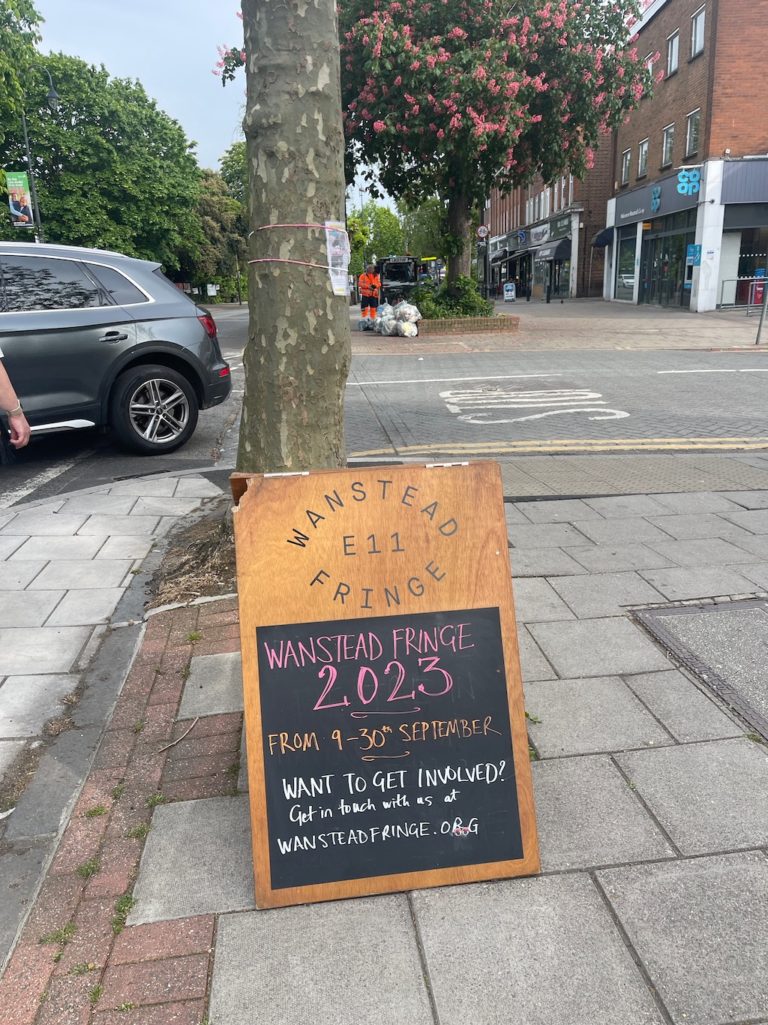 co
op
WANSTEAD
E11
FRINGE
WANSTEAD FRINGE
2023
FROM 9-30th SEPTEMBER
WANT TO GET INVOLVED?
Get in touch with us at
WANSTEADFRINGE.ORG